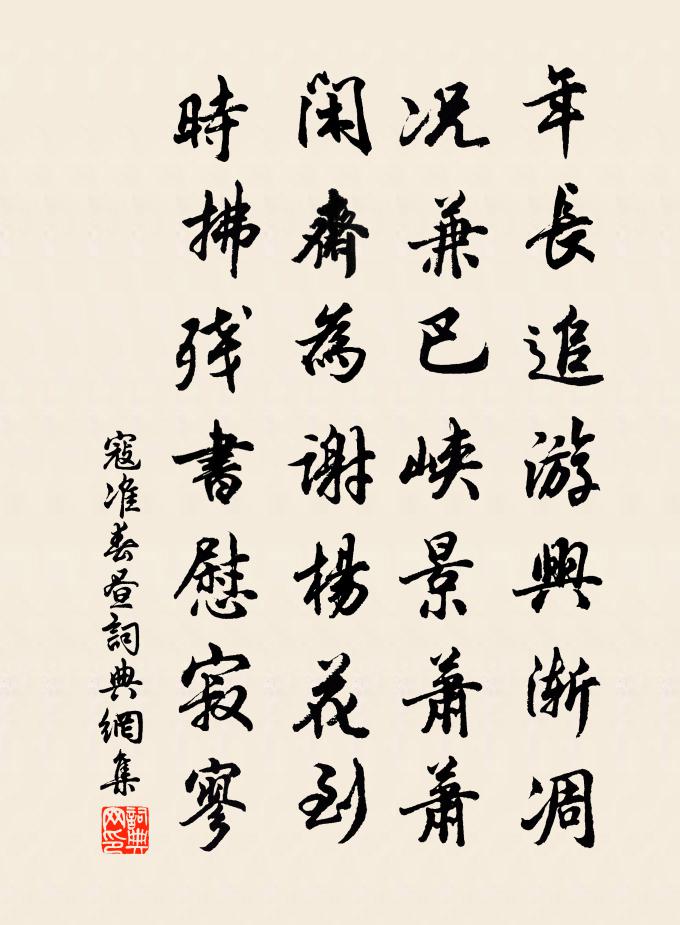 年長追游興漸凋
况兼巴峡景蕭蕭
閑齋為謝楊花到
時拂残書慰寂寥
寇准春昼詞典網集
詞典网印